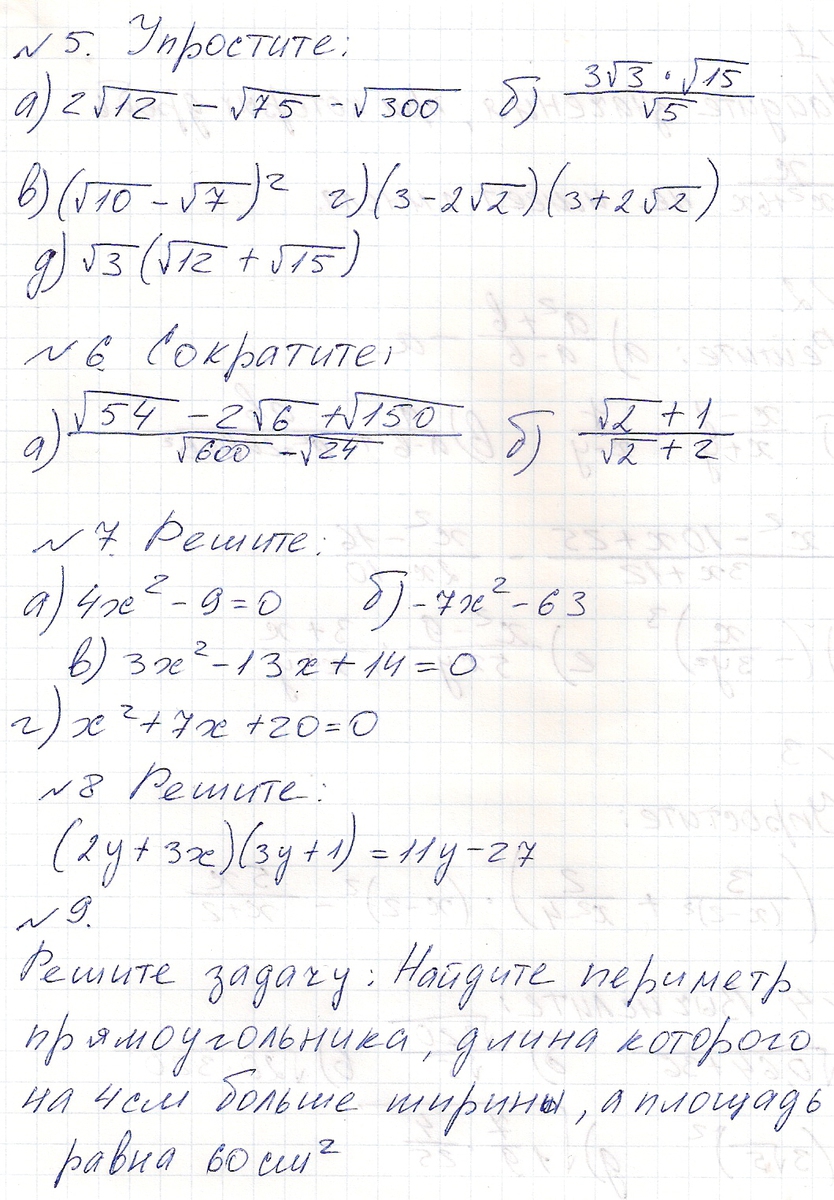 №5. Упростите:
а) 2√12 − √75 − √300 б) (3√3 · √15)/√5
в) (√10 − √7)² г) (3 − 2√2)(3 + 2√2)
д) √3(√12 + √15)
№6 Сократите:
а) (√54 − 2√6 + √150)/(√600 − √24) б) (√2 + 1)/(√2 + 2)
№7. Решите:
а) 4x² − 9 = 0 б) −7x² − 63
в) 3x² − 13x + 14 = 0
г) x² + 7x + 20 = 0
№8 Решите:
(2y + 3x)(3y + 1) = 11y − 27
№9.
Решите задачу: Найдите периметр
прямоугольника, длина которого
на 4см больше ширины, а площадь
равна 60см²